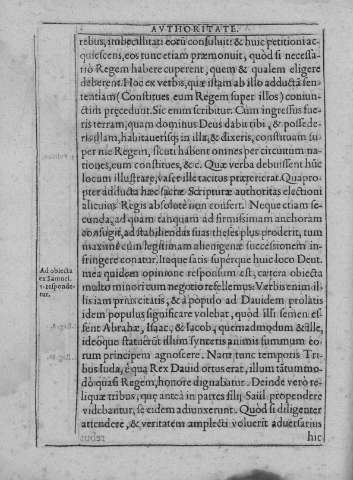 AVTHORITATE.
rebus, imbecillitati eorū consuluit: & huic petitioni ac-
quiescens, eos tunc etiam præmonuit, quòd si necessa-
riò Regem habere cuperent, quem & qualem eligere
deberent. Hoc ex verbis, quæ istam ab illo adductā sen-
tentiam (Constitues eum Regem super illos) coniun-
ctim præcedunt. Sic enim scribitur. Cùm ingressus fue-
ris terram, quam dominus Deus dabit tibi, & posse de-
ris illam, habitauerísq; in illa, & dixeris, constituam su-
per me Regem, sicuti habent omnes per circuitum na-
tiones, eum constitues, &c. Quæ verba debuissent hūc
locum illustrare, vafer ille tacitus præterierat. Quapro-
pter adducta hæc sacræ Scripturæ authoritas electioni
alicuius Regis absolutè non confert. Neque etiam se-
cunda, ad quam tanquam ad firmissimam anchoram
confugit, ad stabiliendas suas theses plus proderit, tum
maximè cùm legitimam alienigenæ successionem in-
fringere conatur. Itaque satis supérque huic loco Deut.
mea quidem opinione responsum est, cætera obiecta
Ad obiecta
ex Samoel.
responde-
tur.
multo minori cum negotio refellemus. Verbis enim il-
lis iam præcitatis, & à populo ad Dauidem prolatis
idem populus significare volebat, quòd illi semen es-
sent Abrahæ, Isaac, & Iacob, quemadmodum & ille,
ideóque statuerūt illum synceris animis summum eo-
rum principem agnoscere. Nam tunc temporis Tri-
bus Iuda, è qua Rex Dauid ortus erat, illum tātummo-
dò quasi Regem, honore dignabatur. Deinde verò re-
liquæ tribus, quæ anteà in partes filij Saül propendere
videbantur, se eidem adiunxerunt. Quòd si diligenter
attendere, & veritatem amplecti voluerit aduersarius
hic